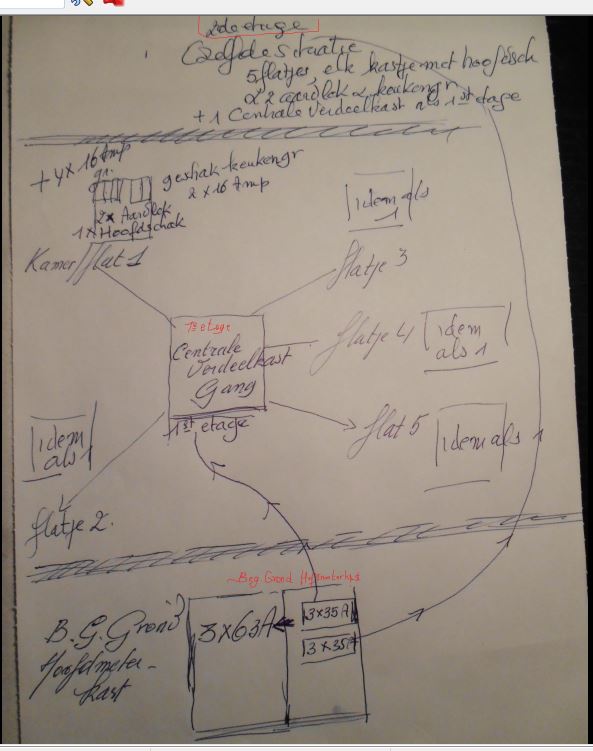 2de etage
Zelfde situatie
5 flatjes, elk kastje met hoofdsch
2 aardlek 2 keukengr
+ 1 Centrale verdeelkast als 1st etage
+ 4 x 16 Amp
gr.
geshak-keukengr
2 x 16 Amp
2x Aardlek
1x Hoofdschak
Kamer/flat 1
idem als
1
flatje 3
1st etage
Centrale
Verdeelkast
Gang
1st etage
flatje 4
idem
als 1
flat 5
idem als 1
idem
als 1
flatje 2.
Beg. Grond
B.G. Grond
Hoofdmeter-
kast
3x63A
3x35A
3x35A